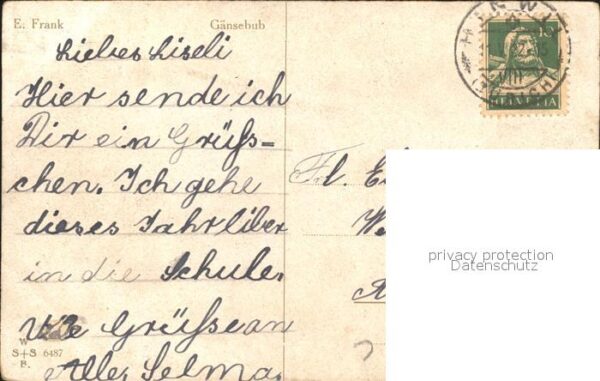 E. Frank
Gänsebub
Liebes Liseli
Hier sende ich
Dir ein Grüss-
chen. Ich gehe
dieses Jahr liber
in die Schule.
Grüsse an
Alle Selma
W
S+S 6487
B.
Fl.
10
HELVETIA
privacy protection
Datenschutz